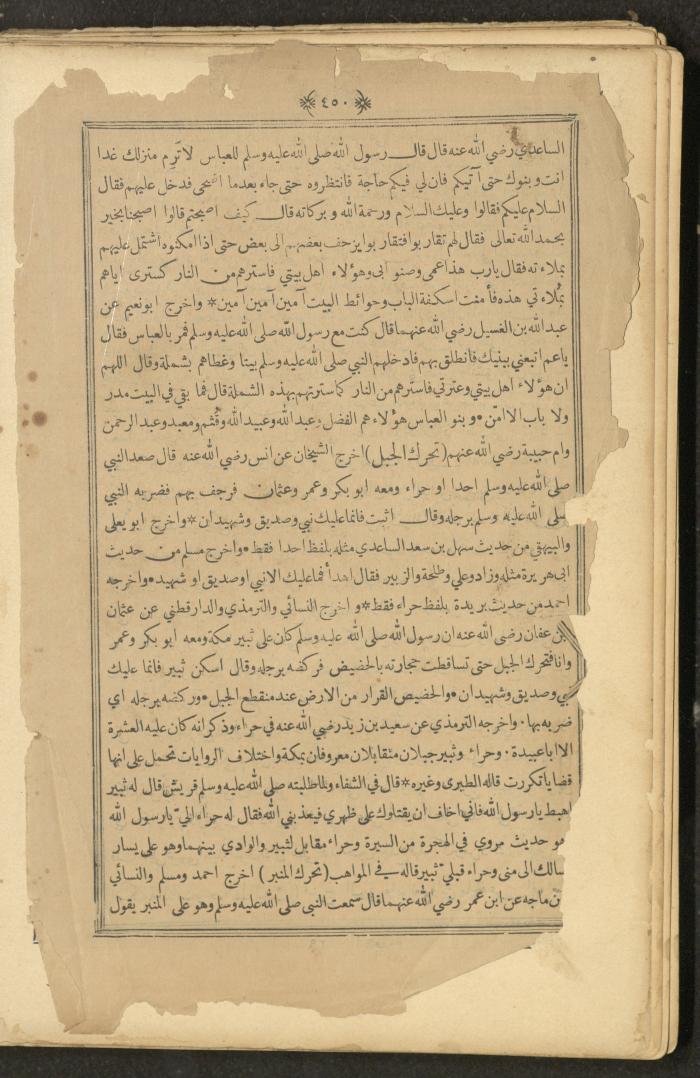 ٤٥٠
الساعدي رضي الله عنه قال قال رسول الله صلى الله عليه وسلم للعباس لا ترم منزلك غدا
انت وبنوك حتى آتيكم فان لي فيكم حاجة فانتظروه حتى جاء بعدما اضحى فدخل عليهم فقال
السلام عليكم فقالوا وعليك السلام ورحمة الله وبركاته قال كيف اصبحتم قالوا اصبحنا بخير
بحمد الله تعالى فقال لهم تقاربوا فتقاربوا يزحف بعضهم الى بعض حتى اذا امكنوه اشتمل عليهم
بملاءته فقال يارب هذا عمى وصنو ابى وهؤلاء اهل بيتي فاسترهم من النار كسترى اياهم
بملاءتي هذه فأمنت اسكفة الباب وحوائط البيت آمين آمين آمين * واخرج ابو نعيم عن
عبد الله بن الغسيل رضي الله عنهما قال كنت مع رسول الله صلى الله عليه وسلم فمر بالعباس فقال
ياعم اتبعني ببنيك فانطلق بهم فادخلهم النبي صلى الله عليه وسلم بيتا وغطاهم بشملة وقال اللهم
ان هؤلاء اهل بيتي وعترتي فاسترهم من النار كما سترتهم بهذه الشملة قال فما بقي في البيت مدر
ولا باب الا امن • وبنو العباس هؤلاء هم الفضل وعبد الله وعبيد الله وقثم ومعبد وعبد الرحمن
وام حبيبة رضي الله عنهم (تحرك الجبل) اخرج الشيخان عن انس رضي الله عنه قال صعد النبي
صلى الله عليه وسلم احدا او حراء ومعه ابو بكر وعمر وعثمان فرجف بهم فضربه النبي
صلى الله عليه وسلم برجله وقال اثبت فانما عليك نبي وصديق وشهيدان * واخرج ابو يعلى
والبيهقي من حديث سهل بن سعد الساعدي مثله بلفظ احدا فقط • واخرج مسلم من حديث
ابى هريرة مثله وزاد وعلي وطلحة والزبير فقال اهدأ فما عليك الا نبي او صديق او شهيد • واخرجه
احمد من حديث بريدة بلفظ حراء فقط * واخرج النسائي والترمذي والدارقطني عن عثمان
بن عفان رضي الله عنه ان رسول الله صلى الله عليه وسلم كان على ثبير مكة ومعه ابو بكر وعمر
وانا فتحرك الجبل حتى تساقطت حجارته بالحضيض فركضه برجله وقال اسكن ثبير فانما عليك
نبي وصديق وشهيدان • والحضيض القرار من الارض عند منقطع الجبل • وركضه برجله اي
ضربه بها • واخرجه الترمذي عن سعيد بن زيد رضي الله عنه في حراء وذكر انه كان عليه العشرة
الا ابا عبيدة • وحراء وثبير جبلان متقابلان معروفان بمكة واختلاف الروايات تحمل على انها
قضايا تكررت قاله الطبرى وغيره * قال في الشفاء ولما طلبته صلى الله عليه وسلم قريش قال له ثبير
اهبط يارسول الله فاني اخاف ان يقتلوك على ظهري فيعذبني الله فقال له حراء اليّ يارسول الله
هو حديث مروي في الهجرة من السيرة وحراء مقابل لثبير والوادي بينهما وهو على يسار
سالك الى منى وحراء قبلي ثبير قاله في المواهب (تحرك المنبر) اخرج احمد ومسلم والنسائي
بن ماجه عن ابن عمر رضي الله عنهما قال سمعت النبى صلى الله عليه وسلم وهو على المنبر يقول